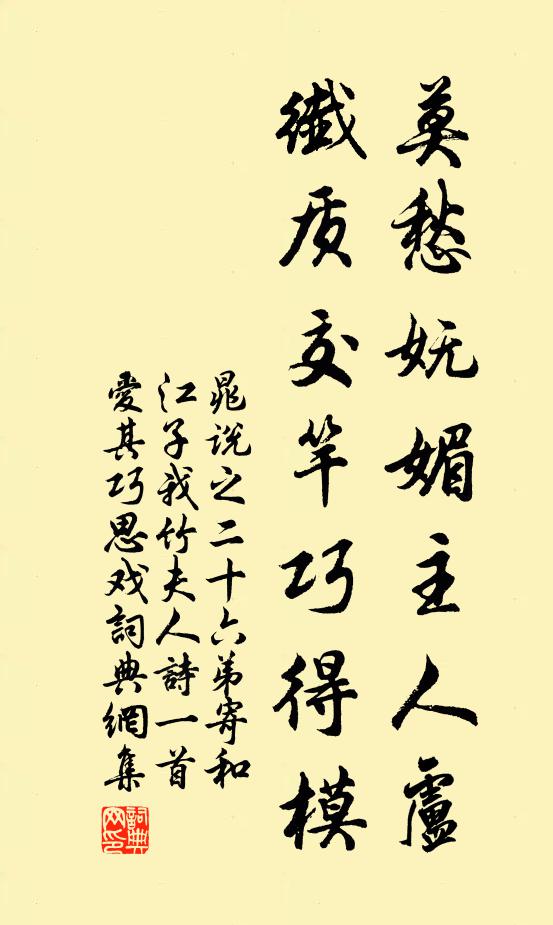 莫愁妩媚主人廬
纖质交竿巧得模
晁说之二十六弟寄和
江子我竹夫人詩一首
愛其巧思戏詞典網集
詞典網印